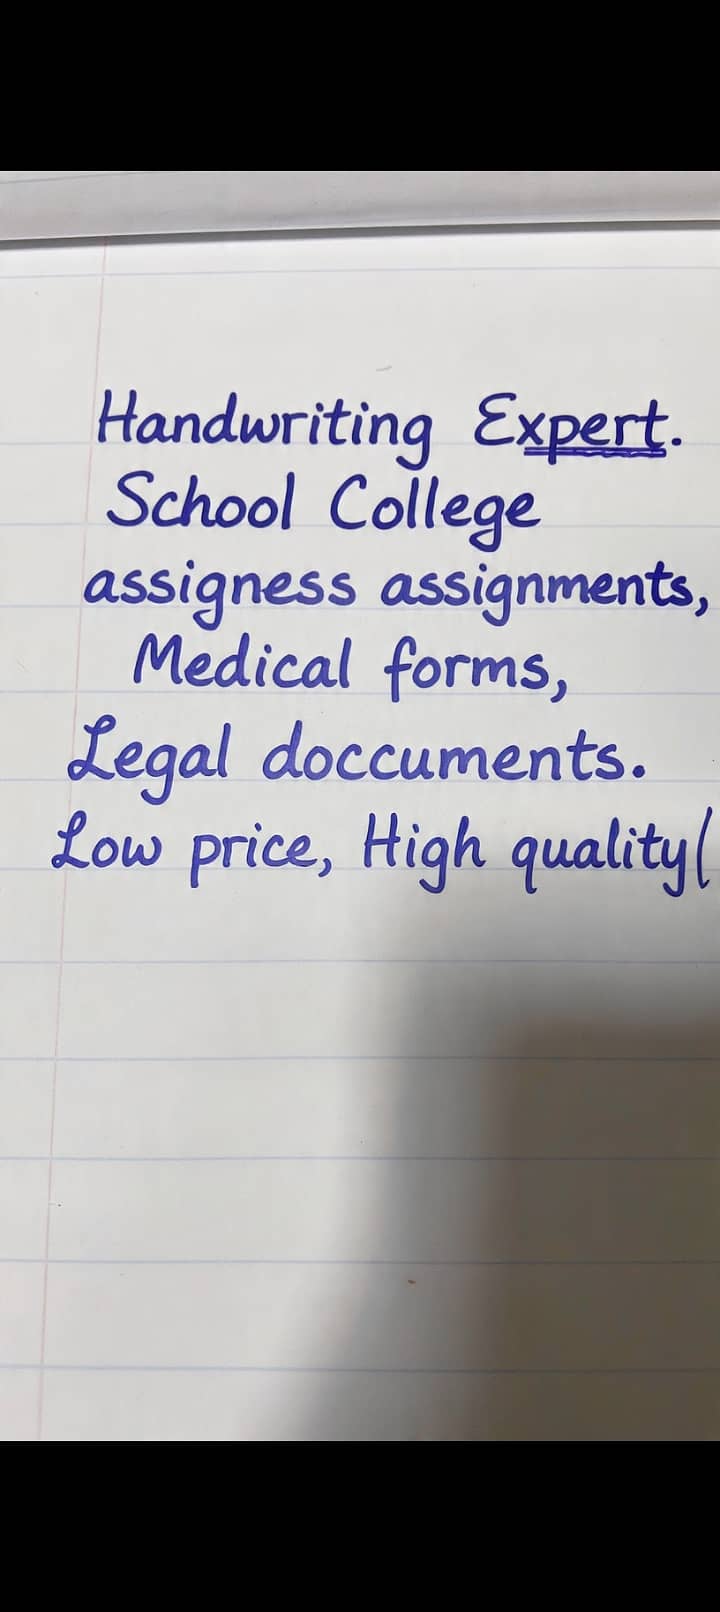 Handwriting Expert.
School College
assigness assignments,
Medical forms,
Legal doccuments.
Low price, High quality(